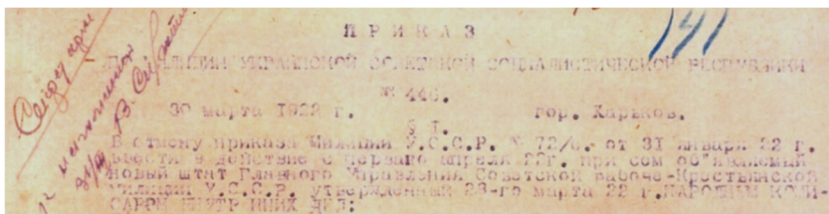 141
П Р И К А З
МИЛИЦИИ УКРАИНСКОЙ СОВЕТСКОЙ СОЦИАЛИСТИЧЕСКОЙ РЕСПУБЛИКИ
№ 446.
30 марта 1922 г. гор. Харьков.
§ I.
В отмену приказа Милиции У.С.С.Р. № 72/0. от 31 января 22 г.
ввести в действие с первого апреля 22г. при сем об"являемый
новый штат Главного Управления Советской Рабоче-Крестьянской
милиции У.С.С.Р. утвержденный 28-го марта 22 г.НАРОДНЫМ КОМИ-
САРОМ ВНУТРЕННИХ ДЕЛ: